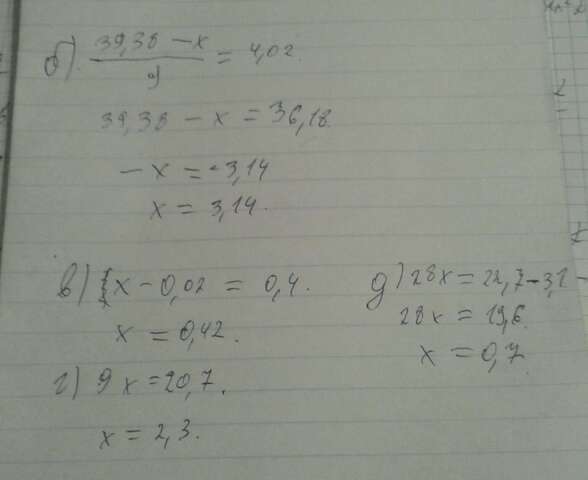 б). (39,38 − x)/9 = 4,02.
39,38 − x = 36,18.
−x = -3,14
x = 3,14.
в) x − 0,02 = 0,4.
x = 0,42.
г) 9x = 20,7.
x = 2,3.
д) 28x = 22,7 − 3,1
28x = 19,6.
x = 0,7.